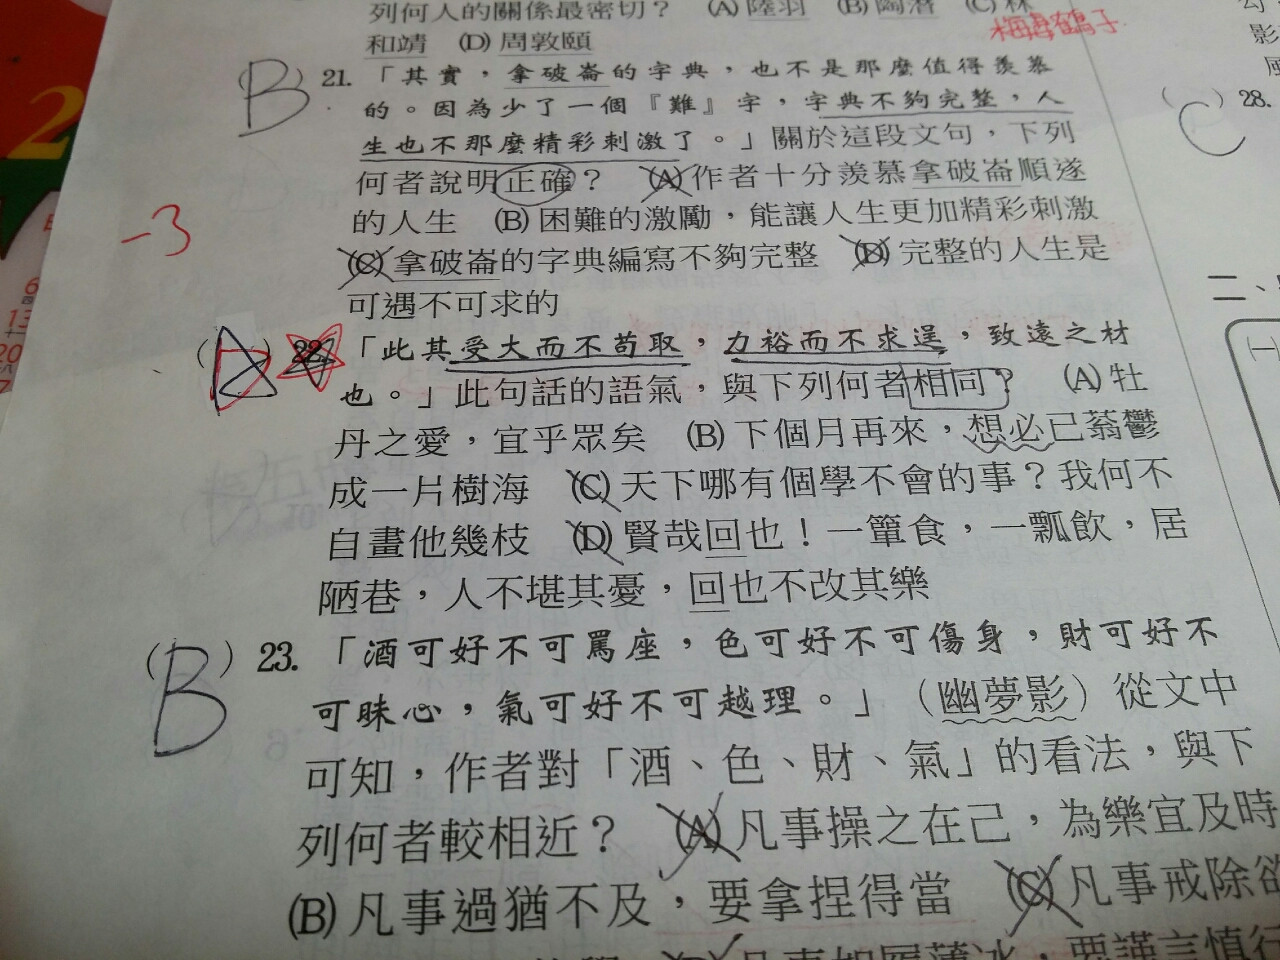 列何人的關係最密切？ (A)陸羽 (B)陶潛 (C)林
和靖 (D)周敦頤
梅妻鶴子
(B) 21. 「其實，拿破崙的字典，也不是那麼值得羨慕
的。因為少了一個『難』字，字典不夠完整，人
生也不那麼精彩刺激了。」關於這段文句，下列
何者說明正確？ (A)作者十分羨慕拿破崙順遂
的人生 (B)困難的激勵，能讓人生更加精彩刺激
(C)拿破崙的字典編寫不夠完整 (D)完整的人生是
可遇不可求的
-3
「此其受大而不苟取，力裕而不求逞，致遠之材
也。」此句話的語氣，與下列何者相同？ (A)牡
丹之愛，宜乎眾矣 (B)下個月再來，想必已蓊鬱
成一片樹海 (C)天下哪有個學不會的事？我何不
自畫他幾枝 (D)賢哉回也！一簞食，一瓢飲，居
陋巷，人不堪其憂，回也不改其樂
(B) 23. 「酒可好不可罵座，色可好不可傷身，財可好不
可昧心，氣可好不可越理。」（幽夢影）從文中
可知，作者對「酒、色、財、氣」的看法，與下
列何者較相近？ (A)凡事操之在己，為樂宜及時
(B)凡事過猶不及，要拿捏得當 (C)凡事戒除欲
凡事如履薄冰，要謹言慎行
(C) 28.
影
二、
(一)
2
13
20